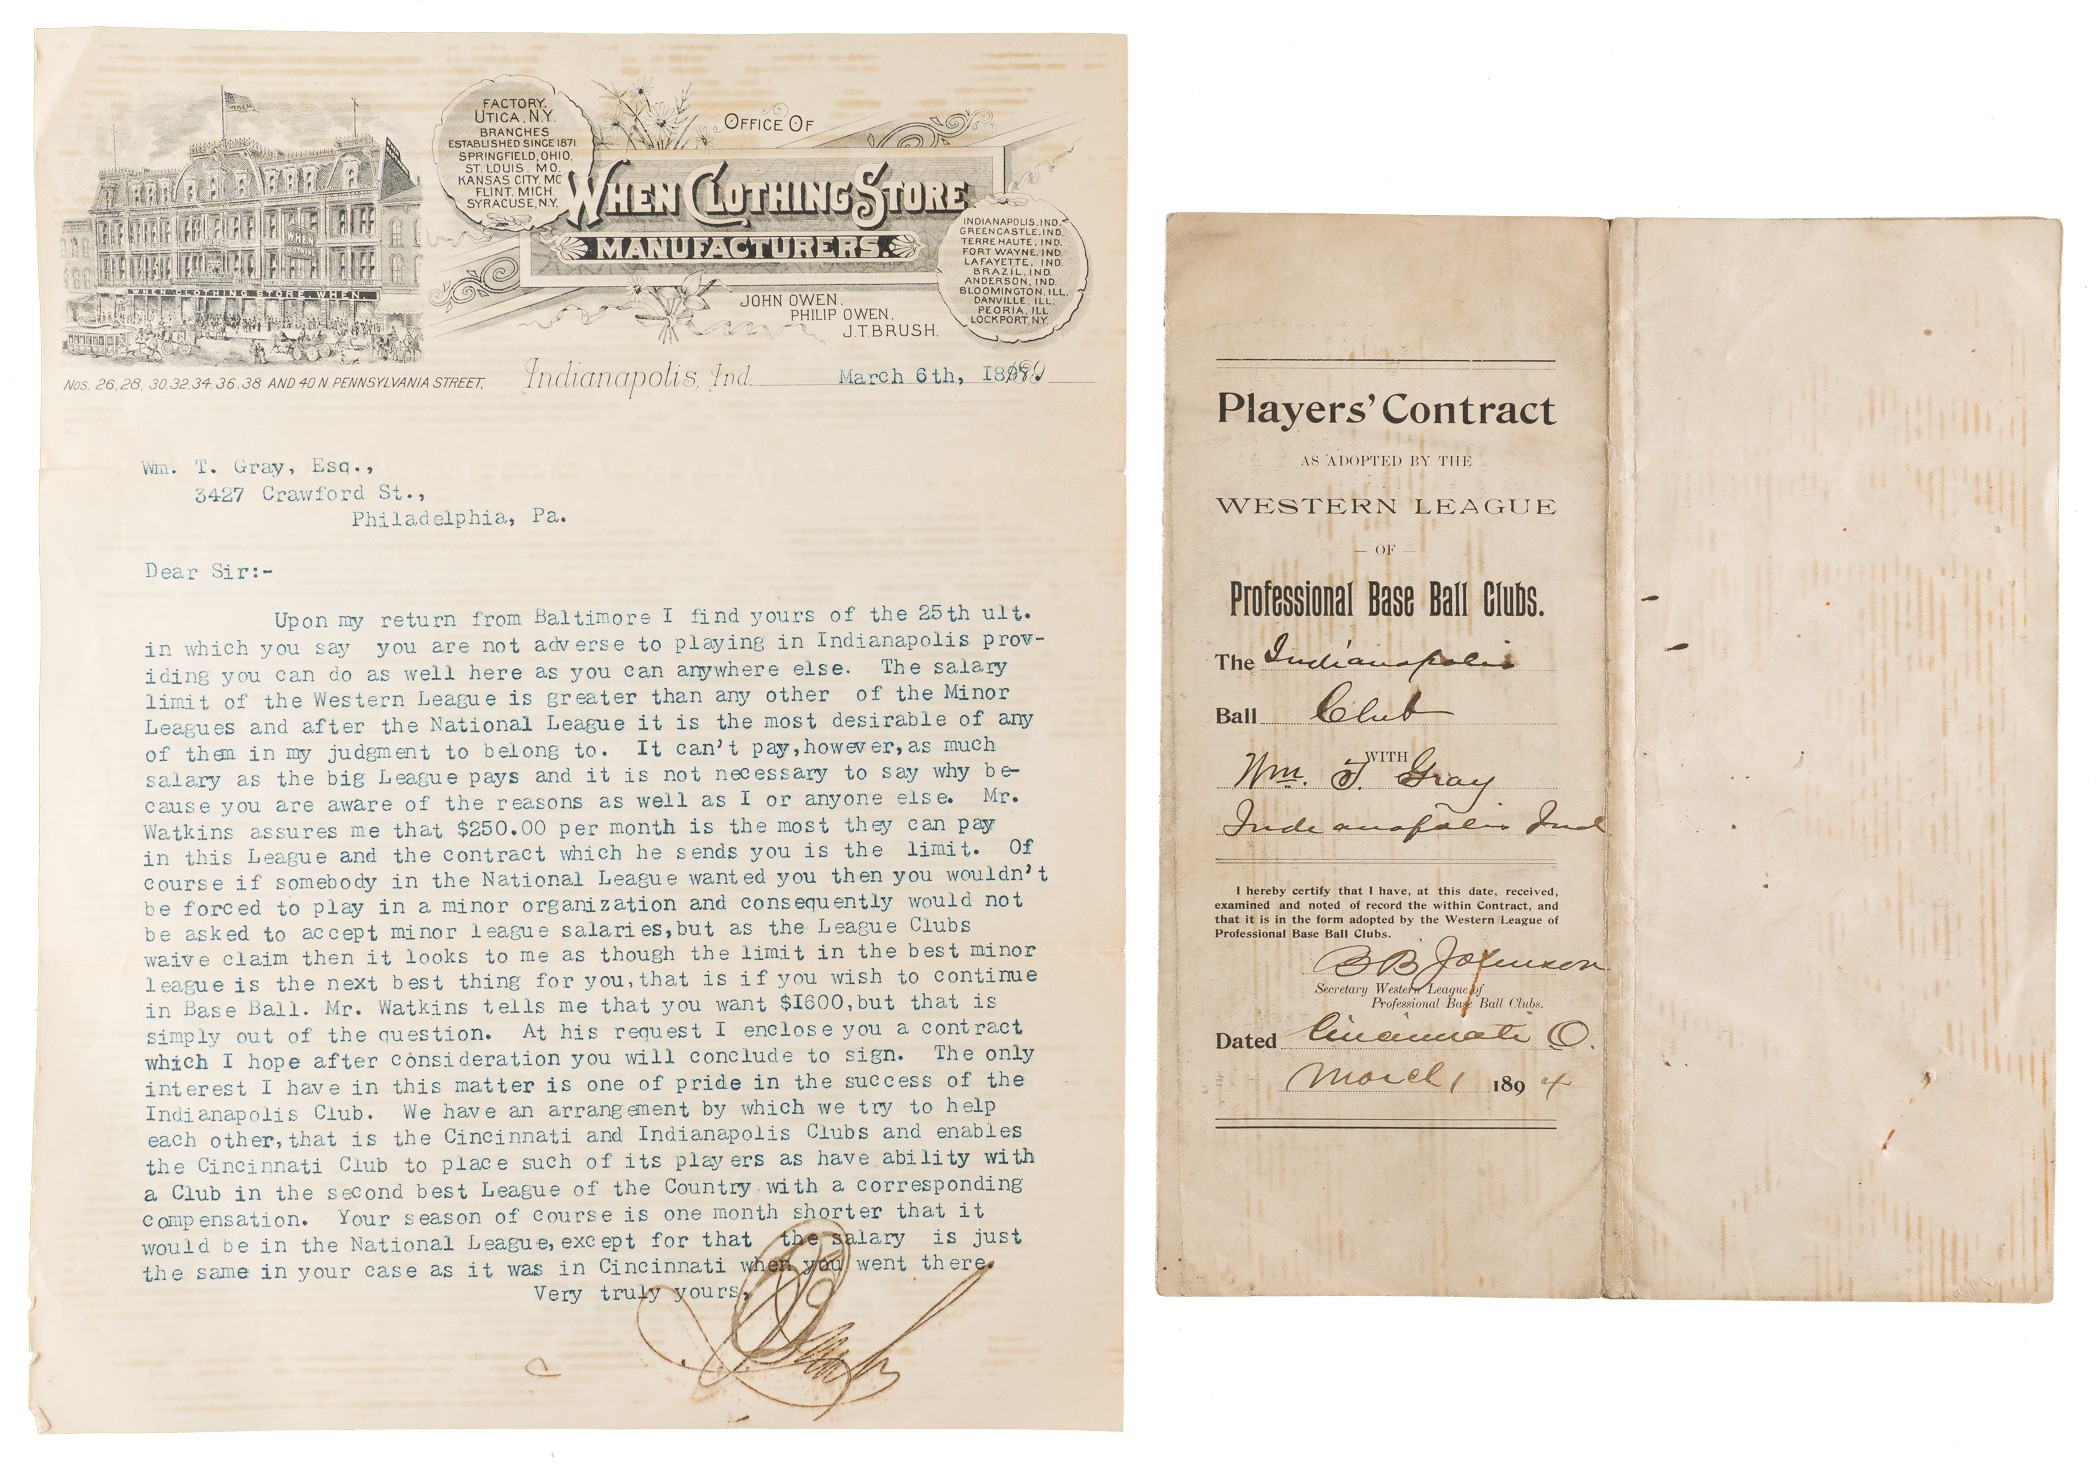 VOSEN
FACTORY,
UTICA, N.Y.
BRANCHES
ESTABLISHED SINCE 1871
SPRINGFIELD, OHIO,
ST. LOUIS, MO.
KANSAS CITY, MO
FLINT, MICH.
SYRACUSE, N.Y.
OFFICE OF
WHEN CLOTHING STORE
MANUFACTURERS.
JOHN OWEN.
PHILIP OWEN,
J.T. BRUSH.
INDIANAPOLIS, IND.
GREENCASTLE, IND.
TERRE HAUTE, IND.
FORT WAYNE, IND.
LAFAYETTE, IND.
BRAZIL, IND.
ANDERSON, IND.
BLOOMINGTON, ILL.
DANVILLE, ILL.
PEORIA, ILL
LOCKPORT, N.Y.
WHEN
WHEN CLOTHING STORE. WHEN.
Nos. 26, 28, 30, 32, 34, 36, 38 AND 40 N. PENNSYLVANIA STREET,
Indianapolis, Ind. March 6th,
Wm. T. Gray, Esq.,
3427 Crawford St.,
Philadelphia, Pa.
Dear Sir:-
Upon my return from Baltimore I find yours of the 25th ult.
in which you say you are not adverse to playing in Indianapolis prov-
iding you can do as well here as you can anywhere else. The salary
limit of the Western League is greater than any other of the Minor
Leagues and after the National League it is the most desirable of any
of them in my judgment to belong to. It can't pay, however, as much
salary as the big League pays and it is not necessary to say why be-
cause you are aware of the reasons as well as I or anyone else. Mr.
Watkins assures me that $250.00 per month is the most they can pay
in this League and the contract which he sends you is the limit. Of
course if somebody in the National League wanted you then you wouldn't
be forced to play in a minor organization and consequently would not
be asked to accept minor league salaries, but as the League Clubs
waive claim then it looks to me as though the limit in the best minor
league is the next best thing for you, that is if you wish to continue
in Base Ball. Mr. Watkins tells me that you want $1600, but that is
simply out of the question. At his request I enclose you a contract
which I hope after consideration you will conclude to sign. The only
interest I have in this matter is one of pride in the success of the
Indianapolis Club. We have an arrangement by which we try to help
each other, that is the Cincinnati and Indianapolis Clubs and enables
the Cincinnati Club to place such of its players as have ability with
a Club in the second best League of the Country with a corresponding
compensation. Your season of course is one month shorter that it
would be in the National League, except for that the salary is just
the same in your case as it was in Cincinnati when you went there.
Very truly yours,
Brush
Players' Contract
AS ADOPTED BY THE
WESTERN LEAGUE
— OF —
Professional Base Ball Clubs.
The Indianapolis
Ball Club
WITH
Wm. T. Gray
Indianapolis Ind
I hereby certify that I have, at this date, received,
examined and noted of record the within Contract, and
that it is in the form adopted by the Western League of
Professional Base Ball Clubs.
B B Johnson
Secretary Western League of
Professional Base Ball Clubs.
Dated Cincinnati O.
March 1 1894